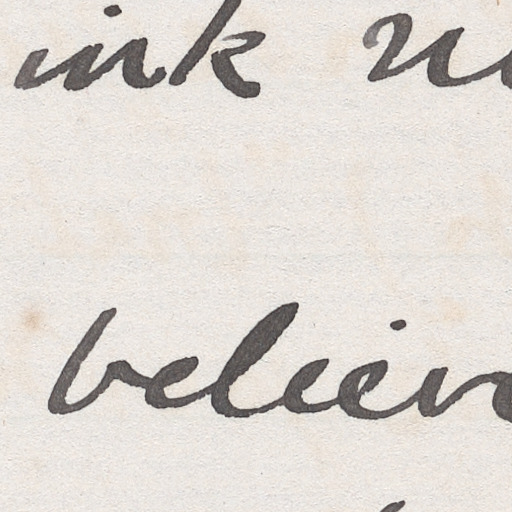 ink
believe